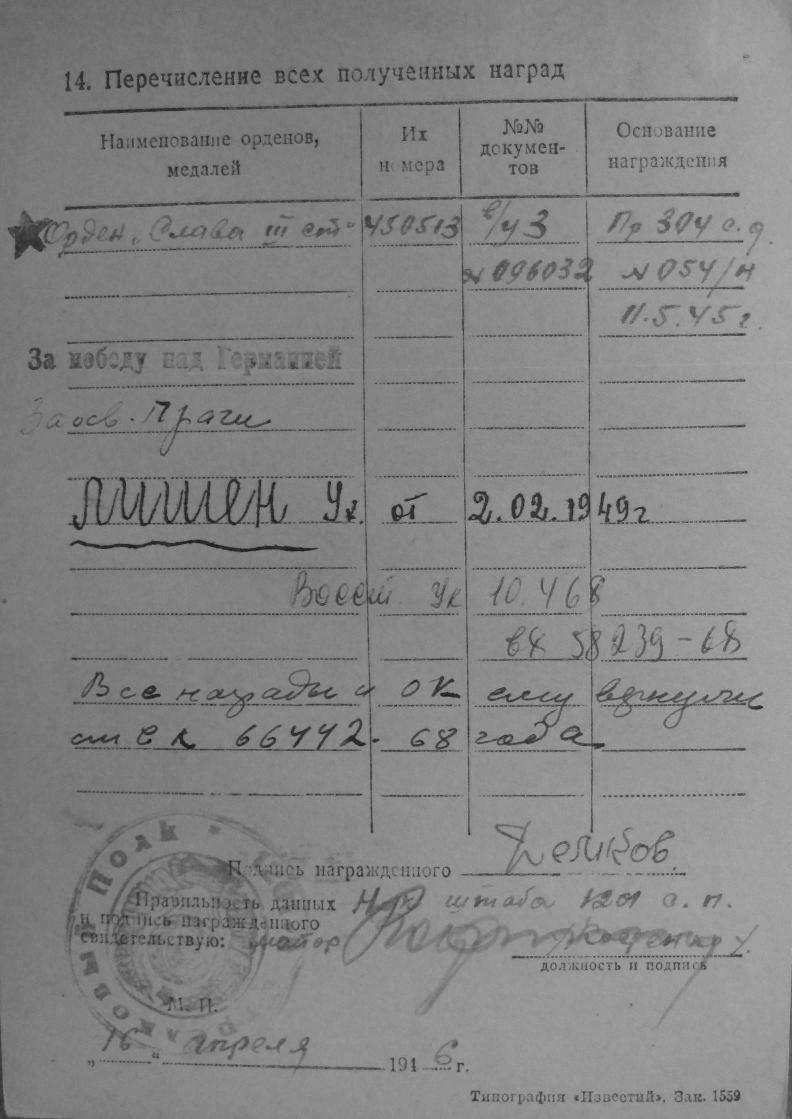 14. Перечисление всех полученных наград
Наименование орденов, медалей
Их номера
№№ докумен-тов
Основание награждения
Орден „Слава III ст“ 450513 в/у 3 Пр 304 с.д.
№ 096032 № 054/н
11.5.45г.
За победу над Германией
За осв. Праги
лишен Ук. от 2.02.1949г
Восст. Ук 10.4 68
вх 58239-68
Все награды и ОК ему вернули
см 66442-68 года
Подпись награжденного
Правильность данных Нач штаба 1201 с.п.
и подпись награжденного
свидетельствую: майор
должность и подпись
М. П.
„16“ апреля 1946 г.
Типография «Известий». Зак. 1559